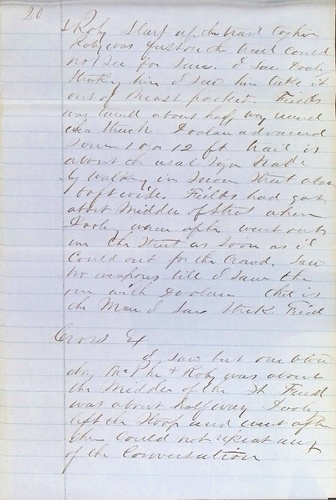 20
& Roby start up the trail together
Roby was just on the trail could
not see for sure. I saw Dooly
Striking him I saw him take it
out of breast pocket Fields
was turned about half way round
when Struck Doolan advanced
some 10 or 12 ft trail is
about the usual
by walking in Snow Street about
wide. Fields had got
about Middle of Street when
Dooly after went out
in the Street as soon as I
could out for the Crowd. Saw
no weapons till I saw the
with Doolan that is
the Man I saw Strike Field
Cross Ex
I saw but one blow
Mc Phe & Roby was about
the Middle of the St Field
was about half way Dooly
left the Stoop and went after
could not repeat any
of the Conversation